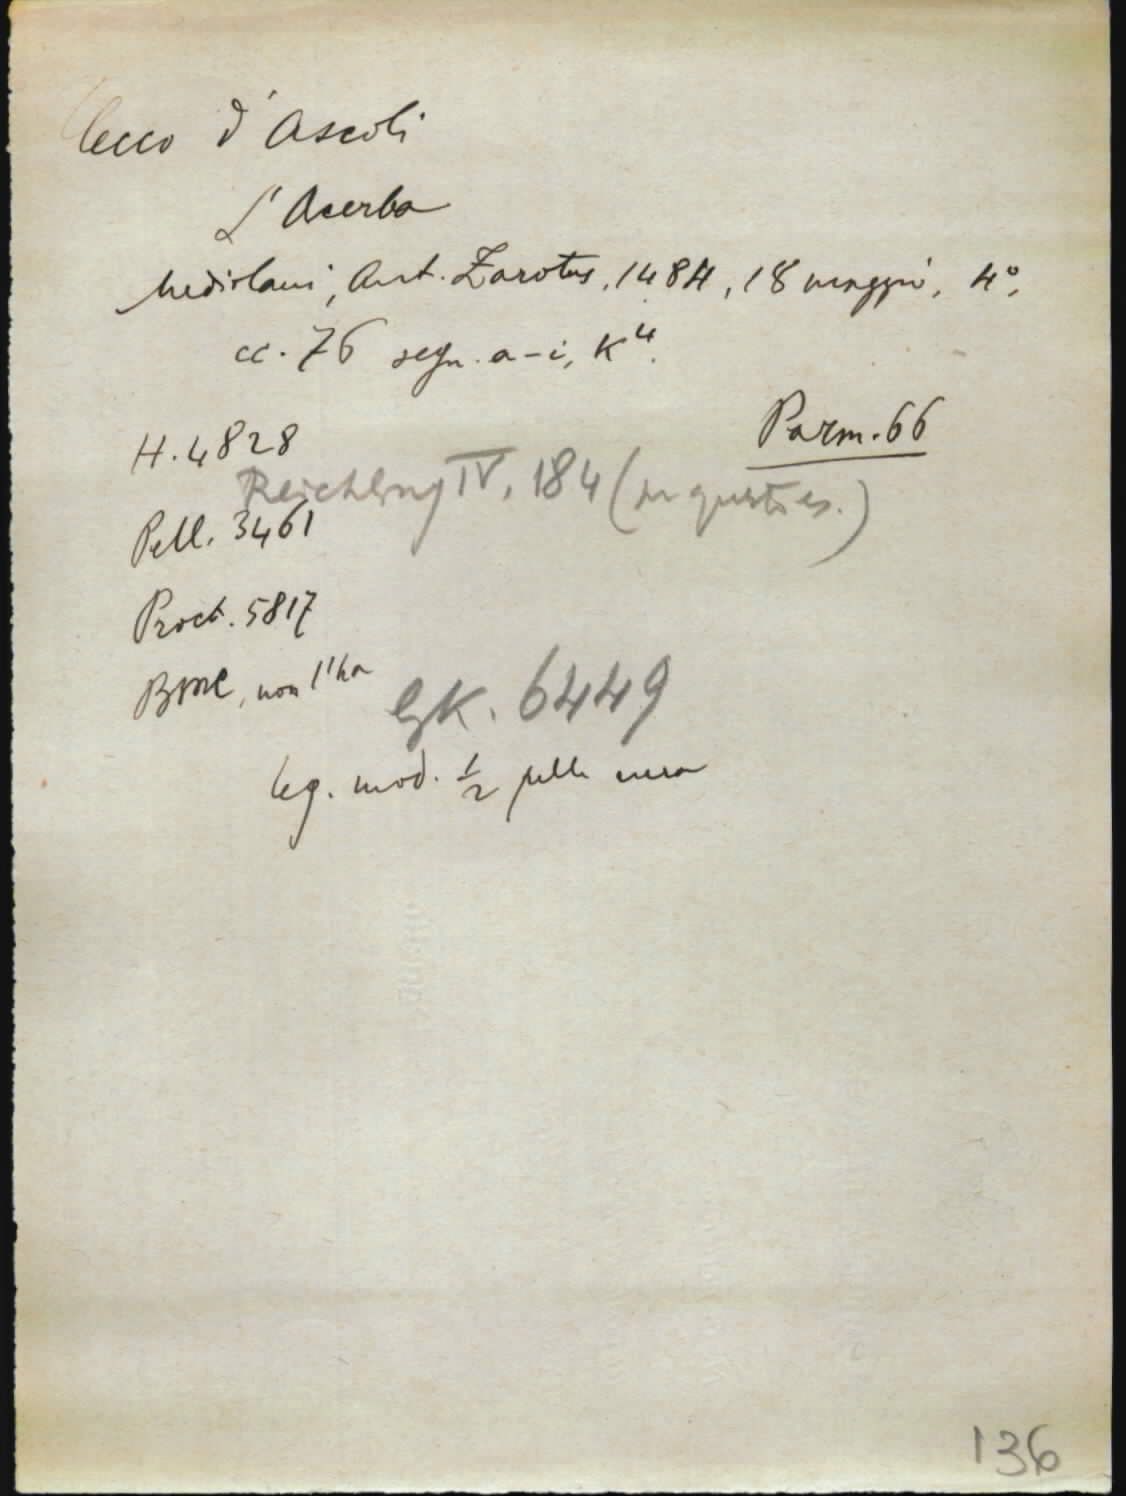 Cecco d'Ascoli
L'Acerba
Mediolani, Ant. Zarotus, 1484, 18 maggio, 4°,
cc. 76 segn. a-i, K⁴.
Parm. 66
H. 4828
Reichling IV, 184 (in questo es.)
Pell. 3461
Proct. 5817
BMC, non l'ha
GK. 6449
leg. mod. ½ pelle nera
136